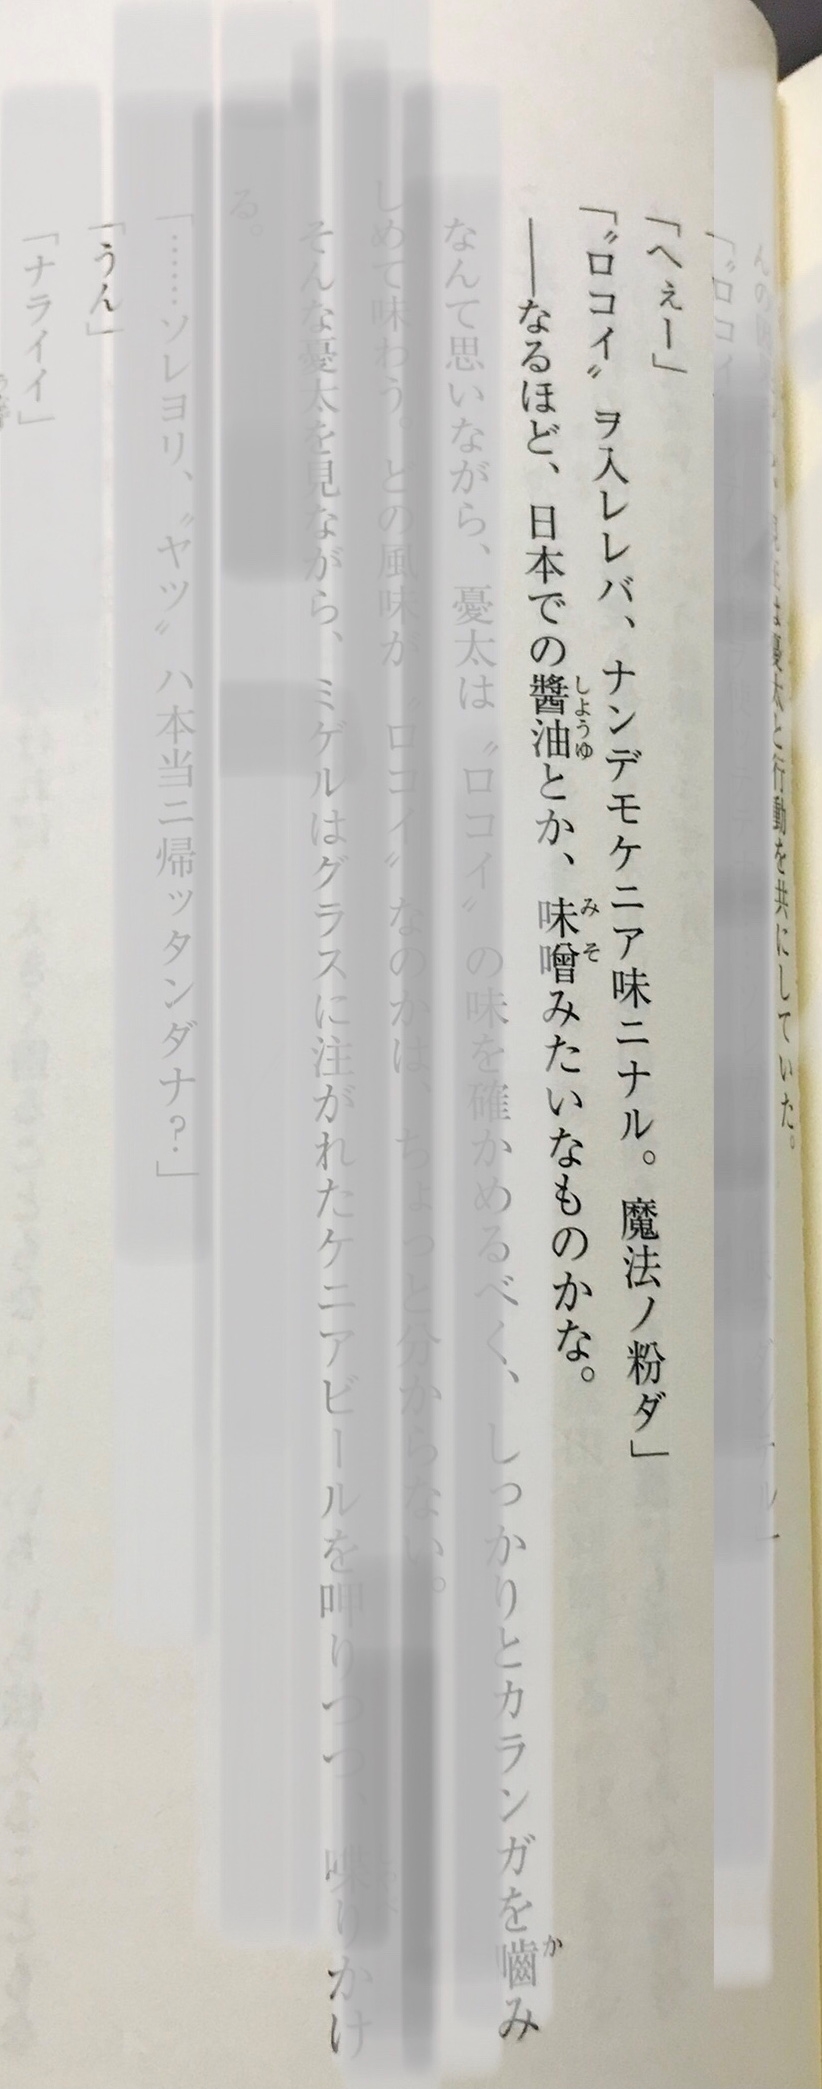 は憂太と行動を共にしていた。
「〝ロコイ
「へぇー」
「〝ロコイ〟ヲ入レレバ、ナンデモケニア味ニナル。魔法ノ粉ダ」
――なるほど、日本での醬油とか、味噌みたいなものかな。
なんて思いながら、憂太は〝ロコイ〟の味を確かめるべく、しっかりとカランガを嚙み
しめて味わう。どの風味が〝ロコイ〟なのかは、ちょっと分からない。
そんな憂太を見ながら、ミゲルはグラスに注がれたケニアビールを呷りつつ、喋りかけ
る。
「……ソレヨリ、〝ヤツ〟ハ本当ニ帰ッタンダナ？」
「うん」
「ナライイ」